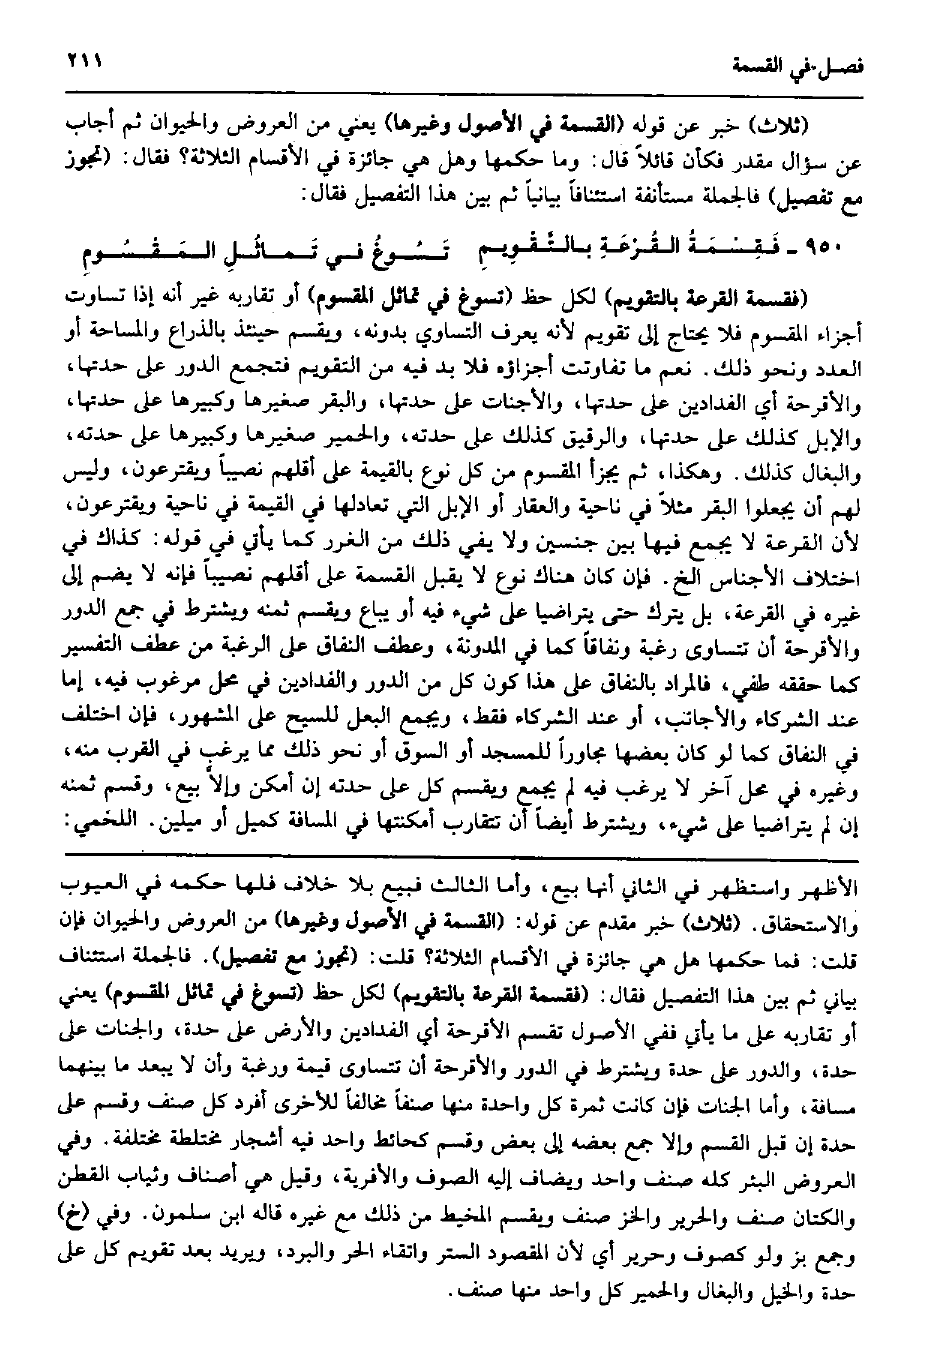 فصل في القسمة ٢١١
(ثلاث) خبر عن قوله (القسمة في الأصول وغيرها) يعني من العروض والحيوان ثم أجاب
عن سؤال مقدر فكأن قائلاً قال: وما حكمها وهل هي جائزة في الأقسام الثلاثة؟ فقال: (تجوز
مع تفصيل) فالجملة مستأنفة استئنافاً بيانياً ثم بين هذا التفصيل فقال:
٩٥٠ ـ فَـقِـسْـمَـةُ الـقُـرْعَـةِ بـالـتَّـقْـوِيـمِ تَـسُـوغُ فـي تَـمـاثُـلِ الـمَـقْـسُـومِ
(فقسمة القرعة بالتقويم) لكل حظ (تسوغ في تماثل المقسوم) أو تقاربه غير أنه إذا تساوت
أجزاء المقسوم فلا يحتاج إلى تقويم لأنه يعرف التساوي بدونه، ويقسم حينئذ بالذراع والمساحة أو
العدد ونحو ذلك. نعم ما تفاوتت أجزاؤه فلا بد فيه من التقويم فتجمع الدور على حدتها،
والأقرحة أي الفدادين على حدتها، والأجنات على حدتها، والبقر صغيرها وكبيرها على حدتها،
والإبل كذلك على حدتها، والرقيق كذلك على حدته، والحمير صغيرها وكبيرها على حدته،
والبغال كذلك. وهكذا، ثم يجزأ المقسوم من كل نوع بالقيمة على أقلهم نصيباً ويقترعون، وليس
لهم أن يجعلوا البقر مثلاً في ناحية والعقار أو الإبل التي تعادلها في القيمة في ناحية ويقترعون،
لأن القرعة لا يجمع فيها بين جنسين ولا يفي ذلك من الغرر كما يأتي في قوله: كذاك في
اختلاف الأجناس الخ. فإن كان هناك نوع لا يقبل القسمة على أقلهم نصيباً فإنه لا يضم إلى
غيره في القرعة، بل يترك حتى يتراضيا على شيء فيه أو يباع ويقسم ثمنه ويشترط في جمع الدور
والأقرحة أن تتساوى رغبة ونفاقاً كما في المدونة، وعطف النفاق على الرغبة من عطف التفسير
كما حققه طفي، فالمراد بالنفاق على هذا كون كل من الدور والفدادين في محل مرغوب فيه، إما
عند الشركاء والأجانب، أو عند الشركاء فقط، ويجمع البعل للسيح على المشهور، فإن اختلف
في النفاق كما لو كان بعضها مجاوراً للمسجد أو السوق أو نحو ذلك مما يرغب في القرب منه،
وغيره في محل آخر لا يرغب فيه لم يجمع ويقسم كل على حدته إن أمكن وإلاَّ بيع، وقسم ثمنه
إن لم يتراضيا على شيء، ويشترط أيضاً أن تتقارب أمكنتها في المسافة كميل أو ميلين. اللخمي:
الأظهر واستظهر في الثاني أنها بيع، وأما الثالث فبيع بلا خلاف فلها حكمه في العيوب
والاستحقاق. (ثلاث) خبر مقدم عن قوله: (القسمة في الأصول وغيرها) من العروض والحيوان فإن
قلت: فما حكمها هل هي جائزة في الأقسام الثلاثة؟ قلت: (تجوز مع تفصيل). فالجملة استئناف
بياني ثم بين هذا التفصيل فقال: (فقسمة القرعة بالتقويم) لكل حظ (تسوغ في تماثل المقسوم) يعني
أو تقاربه على ما يأتي ففي الأصول تقسم الأقرحة أي الفدادين والأرض على حدة، والجنات على
حدة، والدور على حدة ويشترط في الدور والأقرحة أن تتساوى قيمة ورغبة وأن لا يبعد ما بينهما
مسافة، وأما الجنات فإن كانت ثمرة كل واحدة منها صنفاً مخالفاً للأخرى أفرد كل صنف وقسم على
حدة إن قبل القسم وإلا جمع بعضه إلى بعض وقسم كحائط واحد فيه أشجار مختلطة مختلفة. وفي
العروض البئر كله صنف واحد ويضاف إليه الصوف والأفرية، وقيل هي أصناف وثياب القطن
والكتان صنف والحرير والخز صنف ويقسم المخيط من ذلك مع غيره قاله ابن سلمون. وفي (خ)
وجمع بز ولو كصوف وحرير أي لأن المقصود الستر واتقاء الحر والبرد، ويريد بعد تقويم كل على
حدة والخيل والبغال والحمير كل واحد منها صنف.